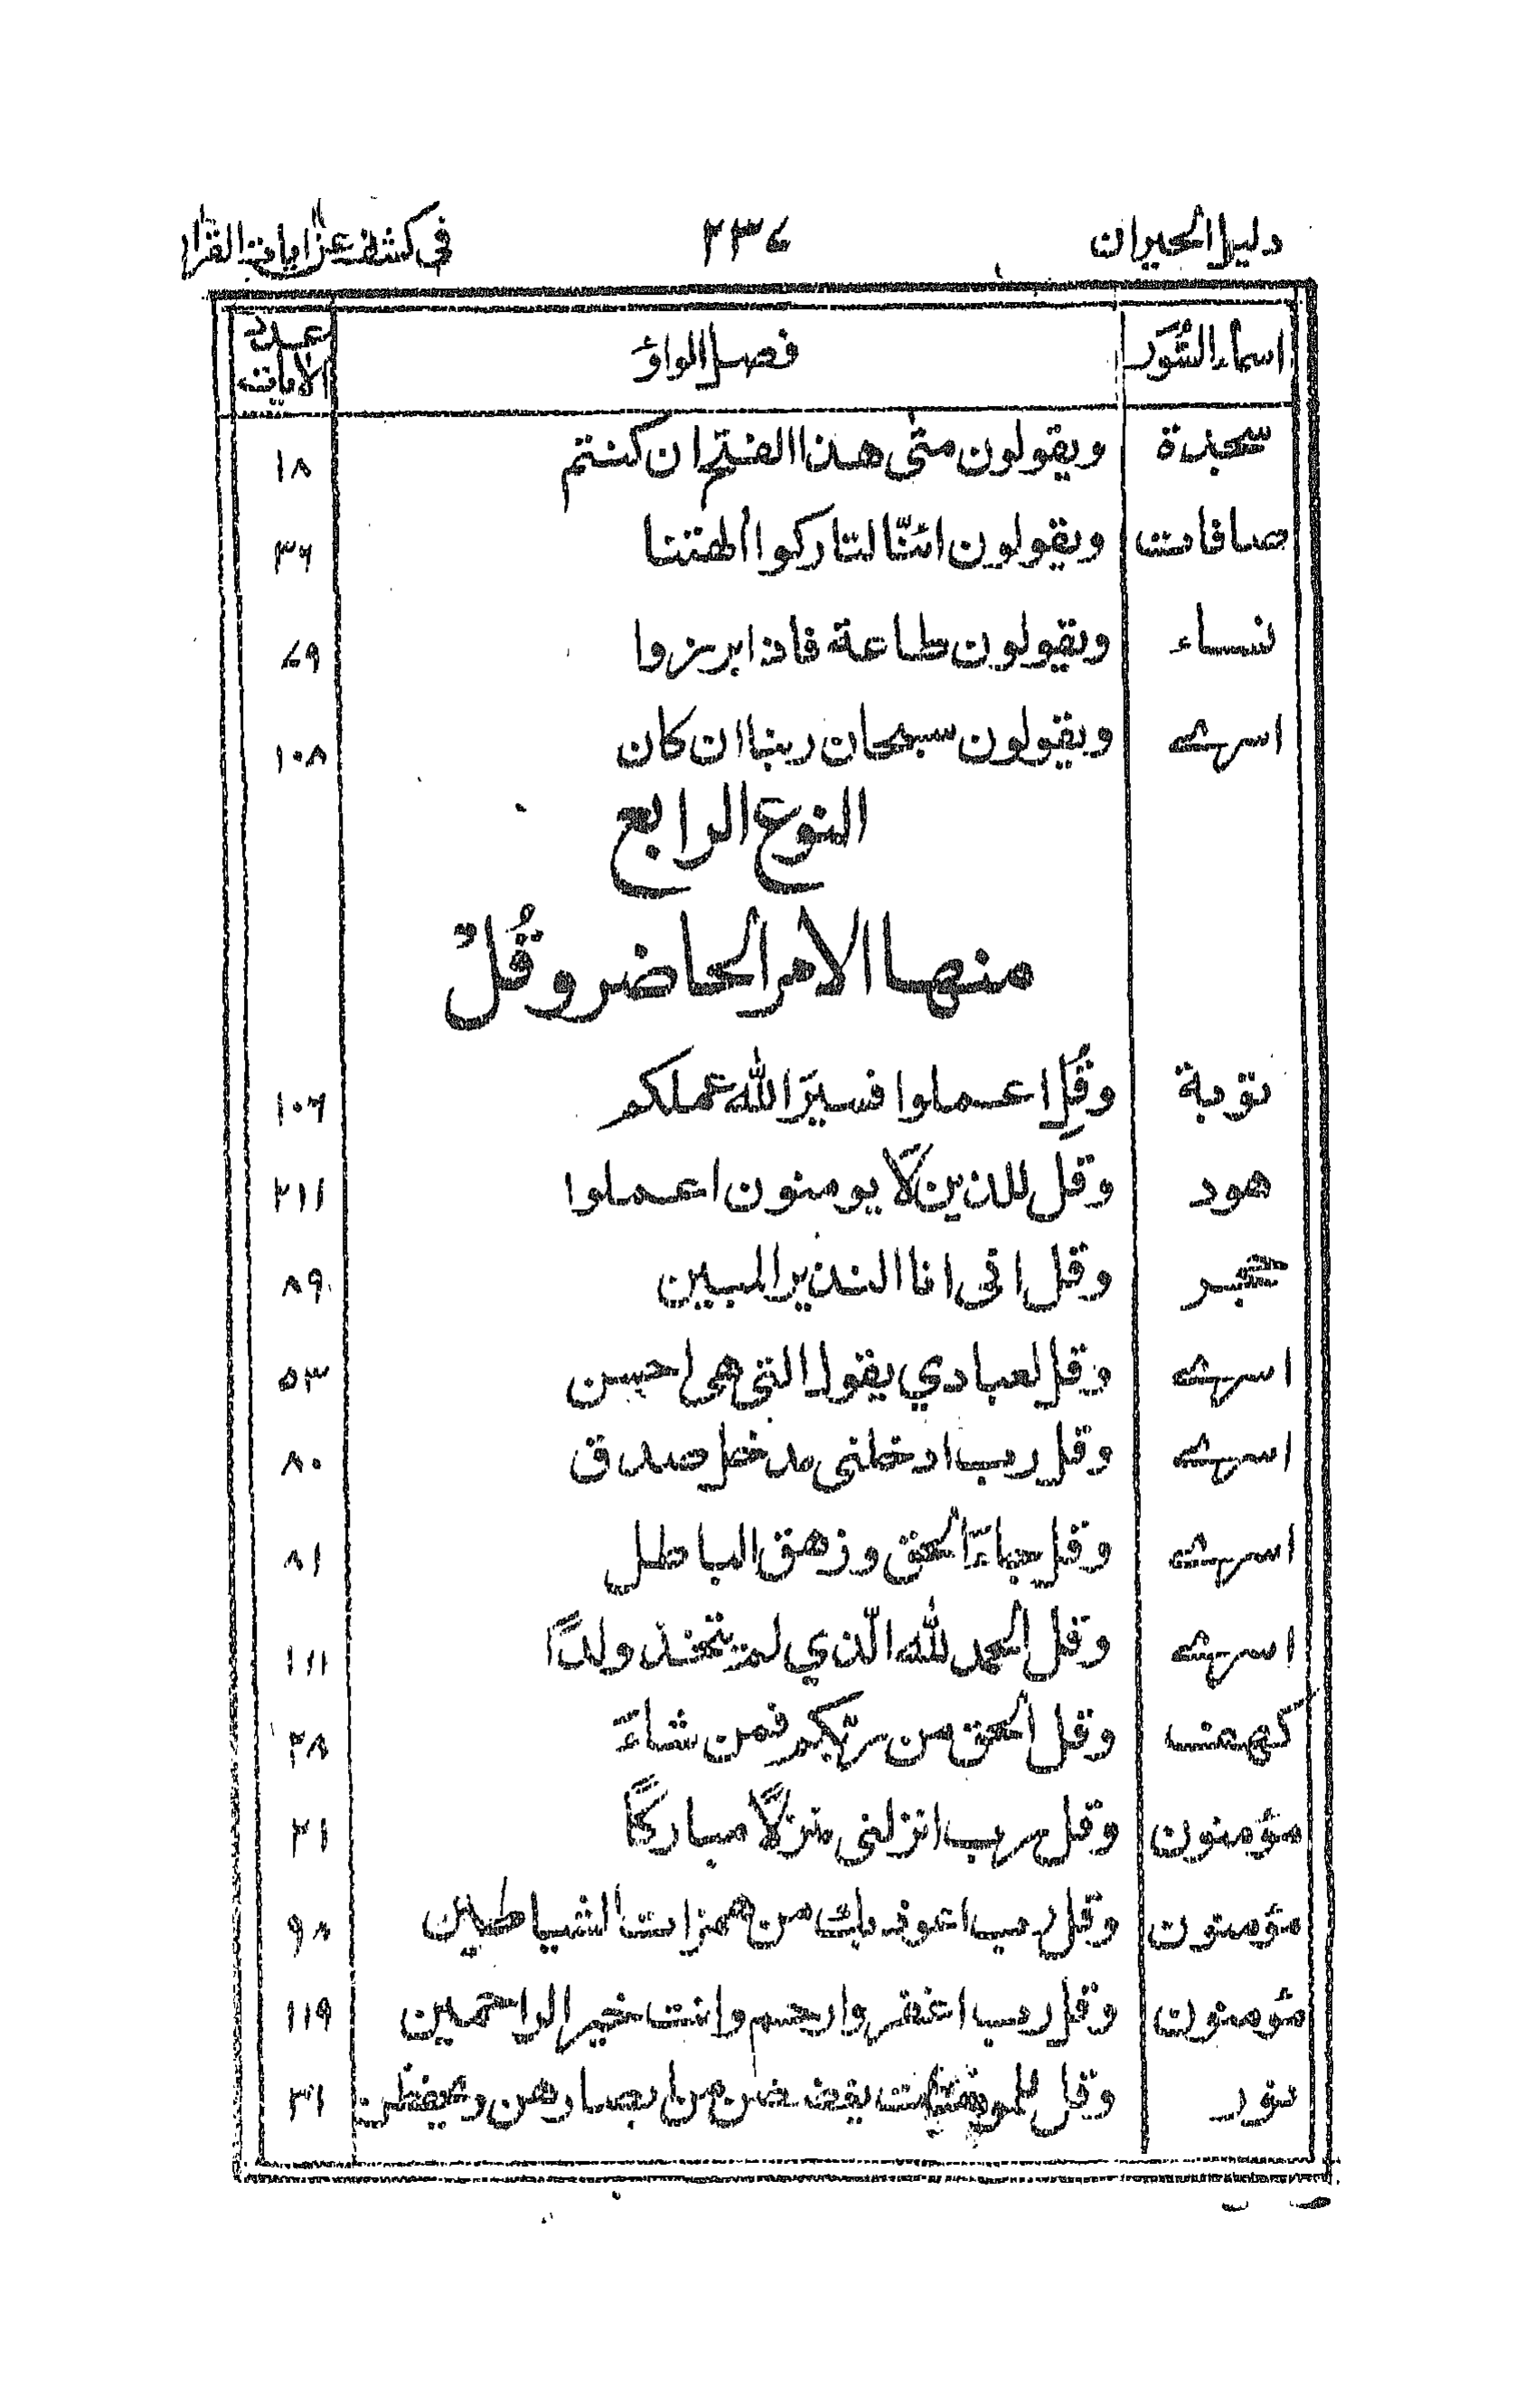 دليل الحيران ٢٣٧ في كشف عن ايات القران
اسماء السُّوَر فصل الواو عدد الايات
سجدة ويقولون متى هذا الفتح ان كنتم ١٨
صافات ويقولون ائنّا لتاركوا الهتنا ٣٦
نساء ويقولون طاعة فاذا برزوا ٧٩
اسرى ويقولون سبحان ربنا ان كان ١٠٨
النوع الرابع
منها الامر الحاضر وقُلْ
توبة وقُلِ اعملوا فسيرَا الله عملكم ١٠٦
هود وقل للذين لا يومنون اعملوا ٢١١
حجر وقل انى انا النذير المبين ٨٩
اسرى وقل لعبادي يقولا التى هى احسن ٥٣
اسرى وقل رب ادخلنى مدخل صدق ٨٠
اسرى وقل جاءَ الحق وزهق الباطل ٨١
اسرى وقل الحمد لله الّذي لم يتخذ ولدًا ١١١
كهف وقل الحق من ربكم فمن شاءَ ٢٨
مؤمنون وقل رب انزلنى منزلًا مباركًا ٢١
مؤمنون وقل رب اعوذ بك من همزات الشياطين ٩٨
مؤمنون وقل رب اغفر وارحم وانت خير الراحمين ١١٩
نور وقل للمومنات يغضضن من ابصارهن ويحفظن ٣١